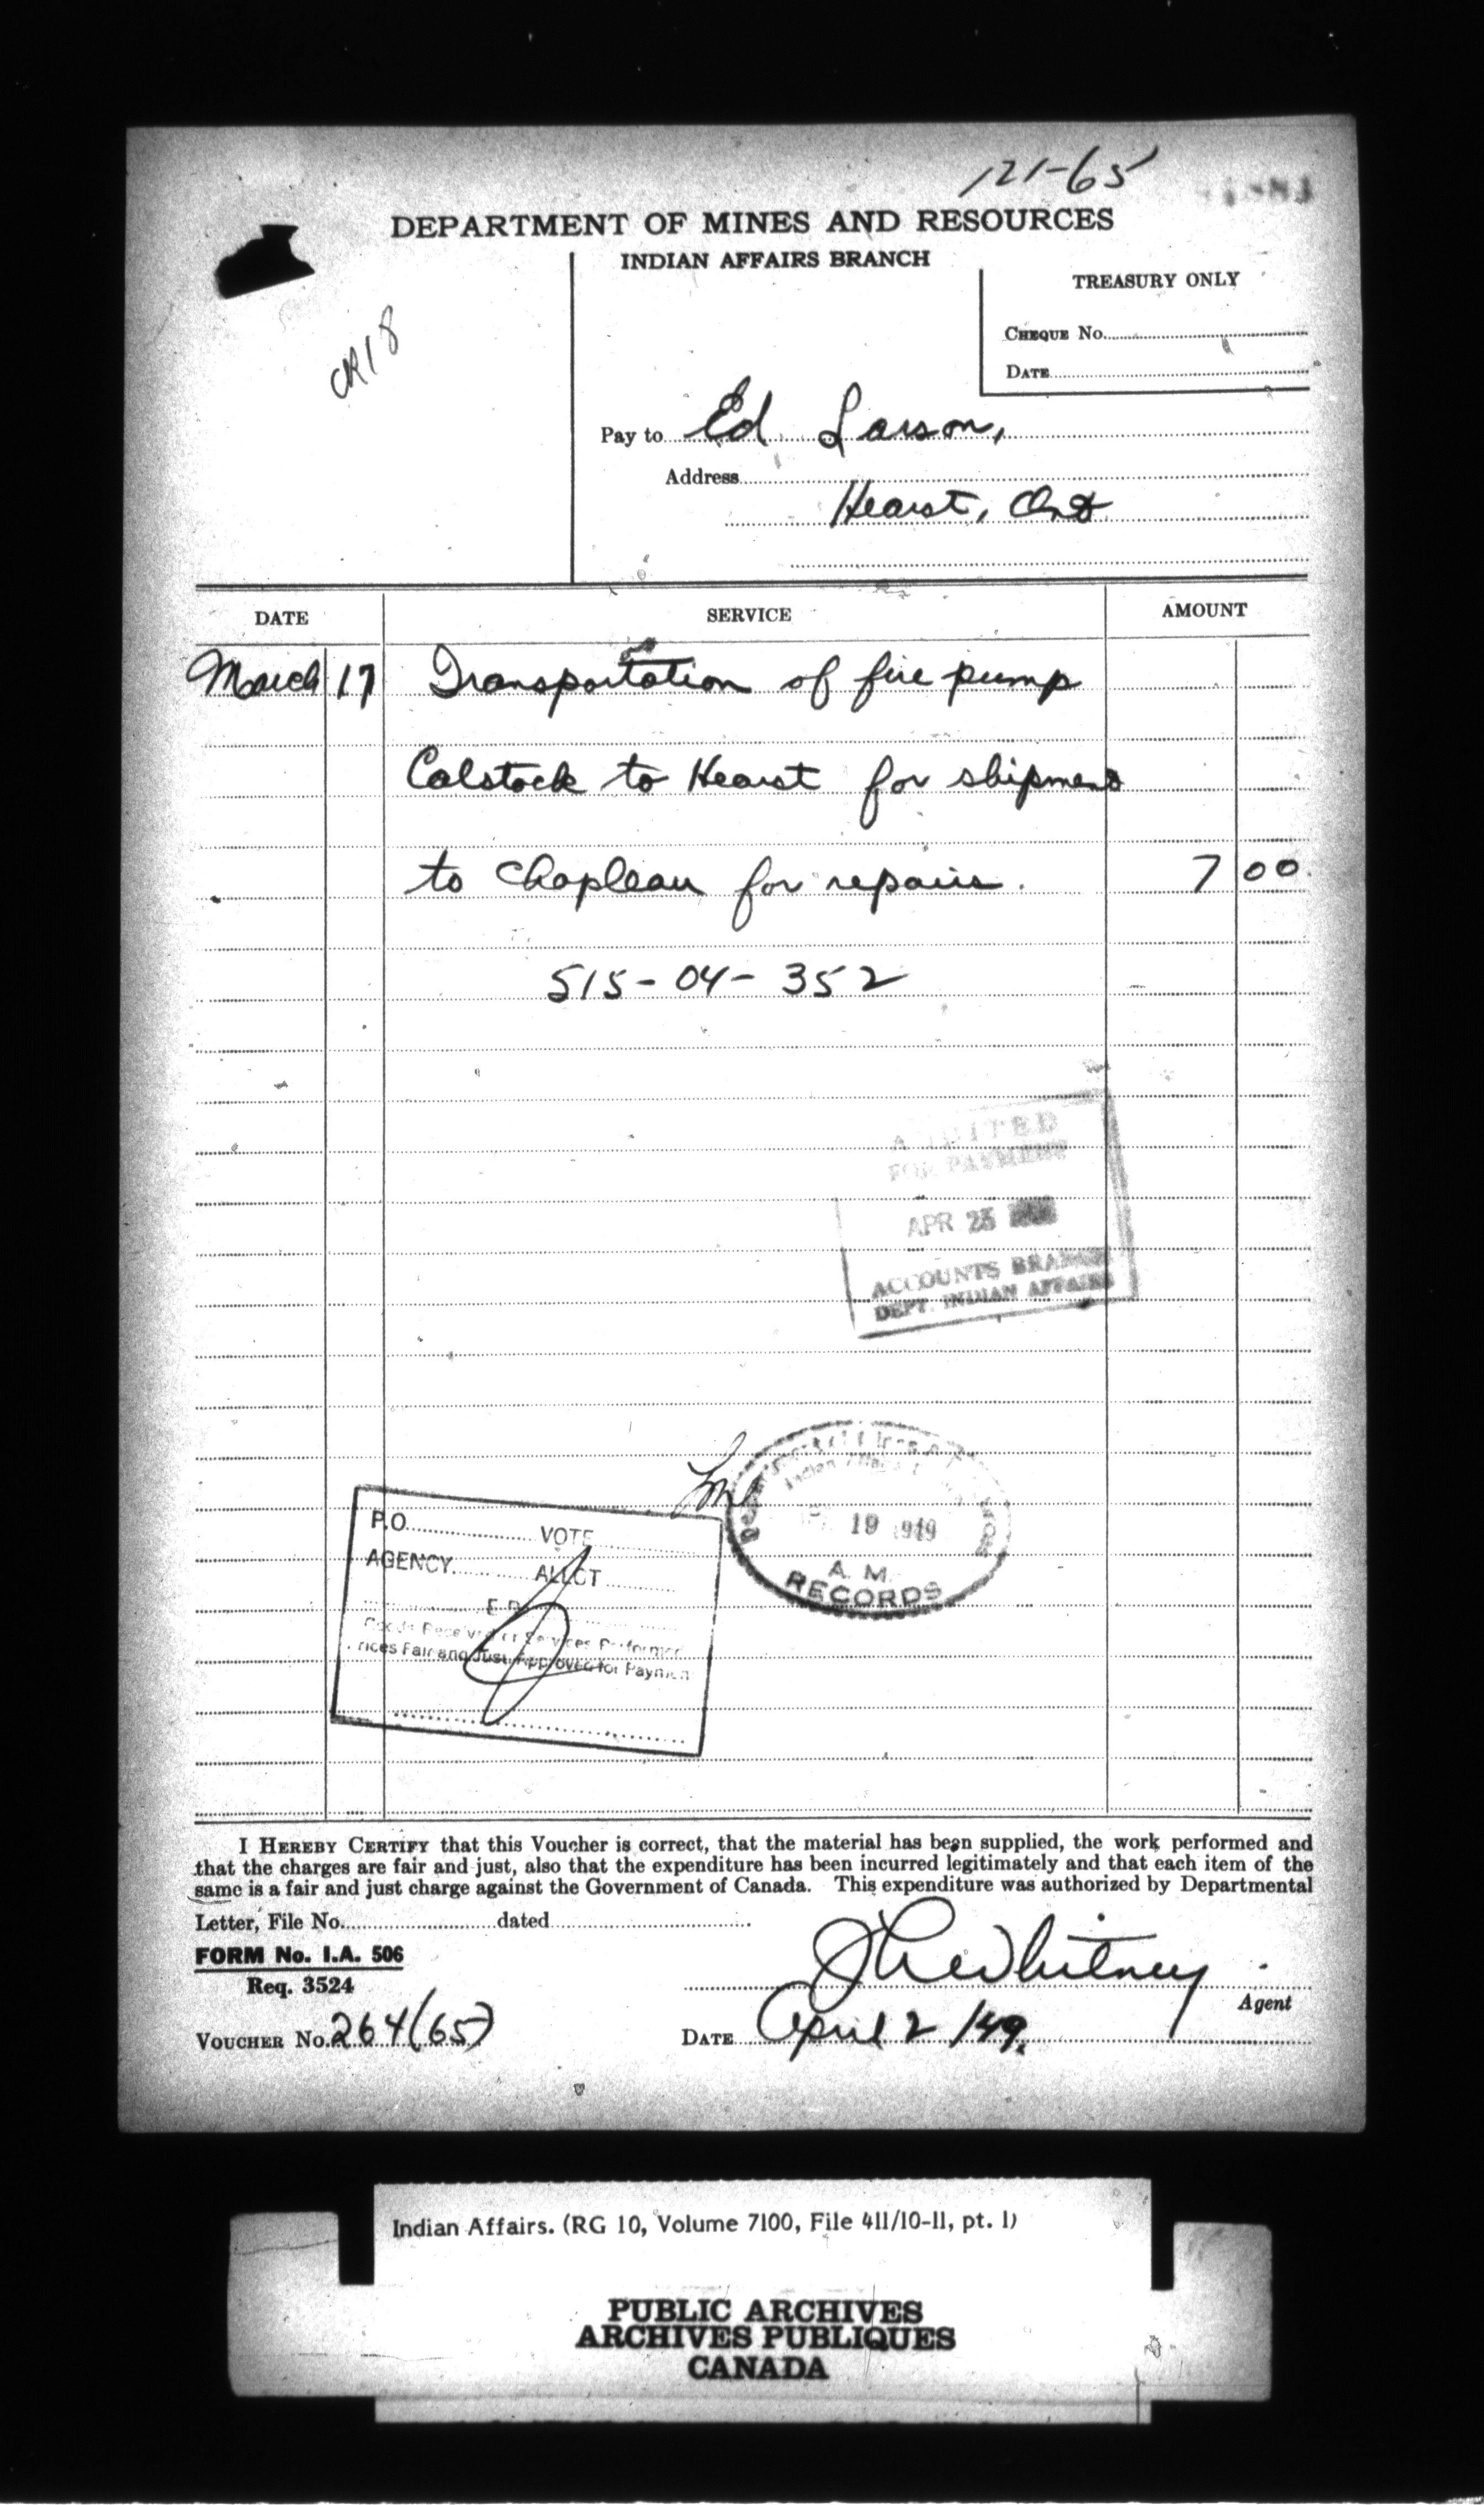 121-65
DEPARTMENT OF MINES AND RESOURCES
INDIAN AFFAIRS BRANCH
TREASURY ONLY
CHEQUE No.
DATE
CR18
Pay to Ed Larson,
Address
Hearst, Ont
DATE SERVICE AMOUNT
March 17 Transportation of fire pump
Calstock to Hearst for shipment
to Chapleau for repairs. 7 00
515-04-352
FOR PAYMENT
APR 23
ACCOUNTS BRANCH
DEPT. INDIAN AFFAIRS
Indian Affairs
19 1949
A. M.
RECORDS
P.O. VOTE
AGENCY ALLOT
Goods Received or Services Performed
Prices Fair and Just. Approved for Payment
I HEREBY CERTIFY that this Voucher is correct, that the material has been supplied, the work performed and
that the charges are fair and just, also that the expenditure has been incurred legitimately and that each item of the
same is a fair and just charge against the Government of Canada. This expenditure was authorized by Departmental
Letter, File No. dated
FORM No. I.A. 506
Req. 3524
Whitney
Agent
VOUCHER No. 264(65) DATE April 2/49.
Indian Affairs. (RG 10, Volume 7100, File 411/10-11, pt. 1)
PUBLIC ARCHIVES
ARCHIVES PUBLIQUES
CANADA